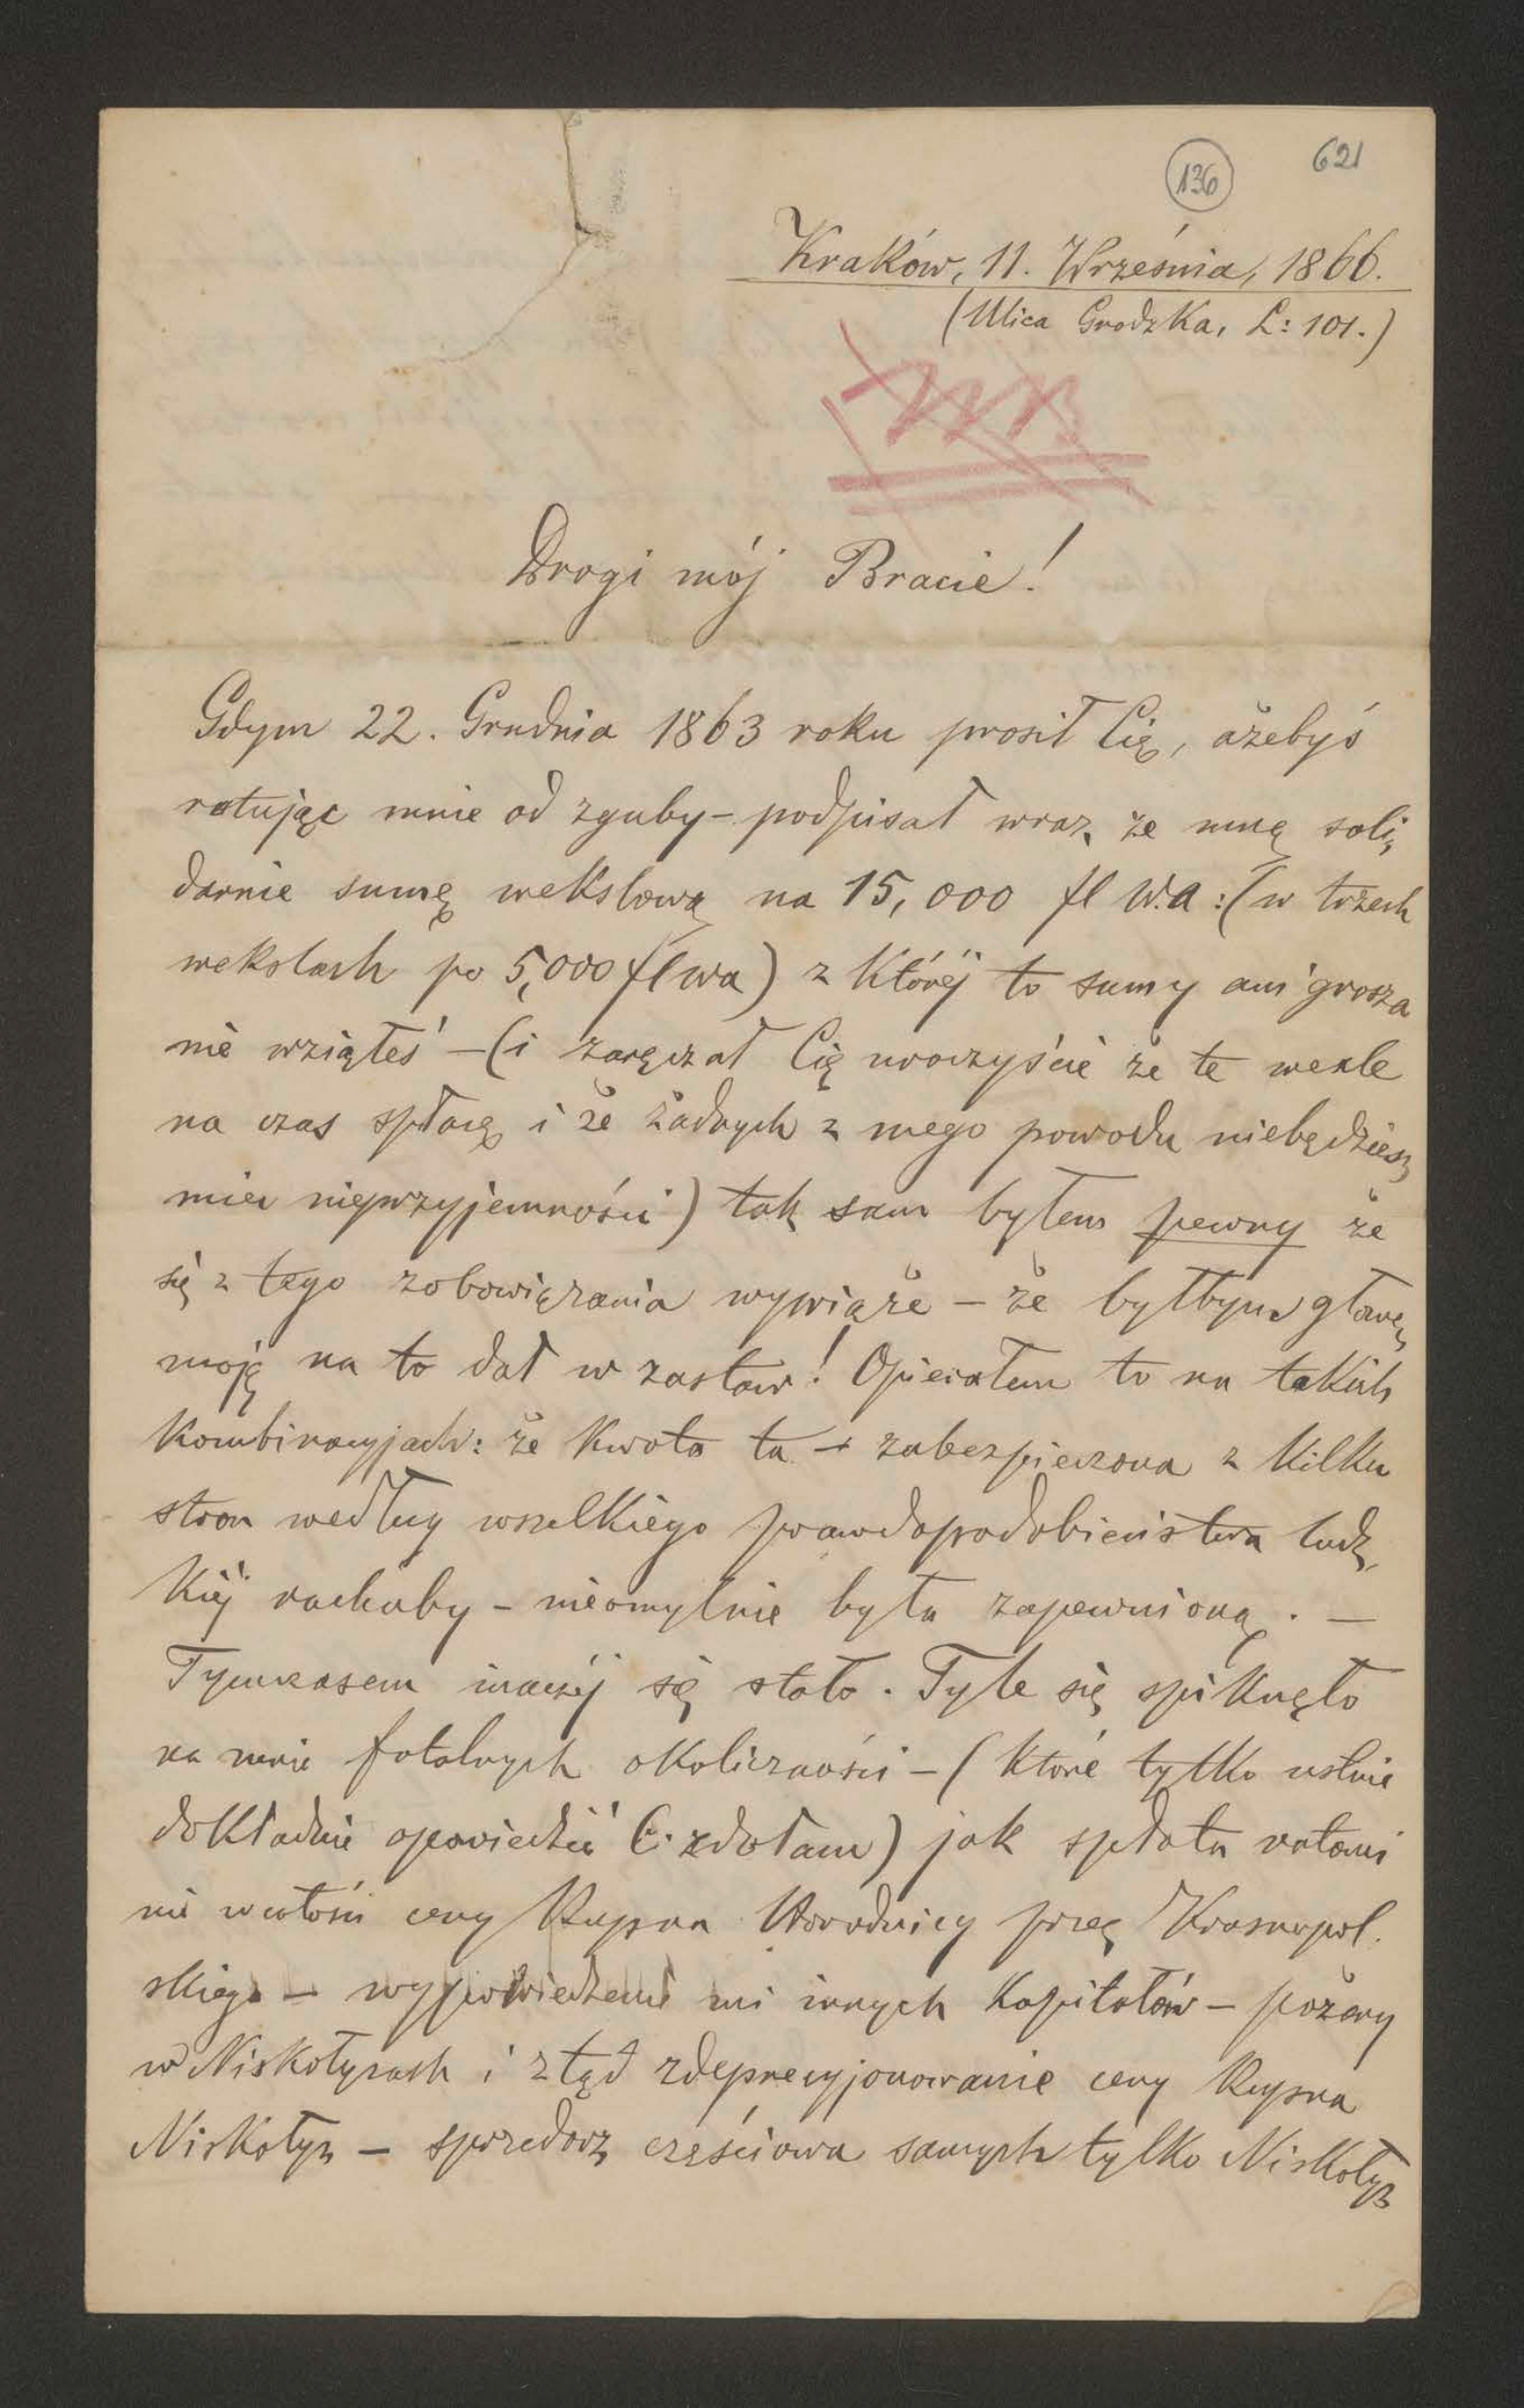 136 621
Kraków, 11. Września, 1866.
(Ulica Grodzka, L: 101.)
Drogi mój Bracie!
Gdym 22. Grudnia 1863 roku prosił Cię, ażebyś
ratując mnie od zguby – podpisał wraz ze mną soli,
darnie sumę wekslową na 15,000 fl w.a: (w trzech
wekslach po 5,000 fl wa) z któréj to sumy ani grosza
nie wziąłeś – (i zaręczał Cię uroczyście że te wexle
na czas spłacę i że żadnych z mego powodu niebędziesz
mieć nieprzyjemności) tak sam byłem pewny że
się z tego zobowiązania wywiąże – że byłbym głowę
moję na to dał w zastaw! Opierałem to na takich
kombinacyjach: że kwota ta – zabezpieczona z kilku
stron według wszelkiego prawdopodobieństwa ludz,
kiéj rachuby – nieomylnie była zapewnioną. –
Tymczasem inaczéj się stało. Tyle się spiknęło
na mnie fatalnych okoliczności – (które tylko ustnie
dokładnie opowiedzić Ci zdołam) jak spłata ratami
nie w całości ceny kupna Horodnicy przez Krasnopol.
skiego – wypowiedzenie mi innych kapitałów – pożary
w Niskołyzach i ztąd zdeprecyjonowanie ceny kupna
Niskołyz – sprzedarz częściowa samych tylko Niskołyz